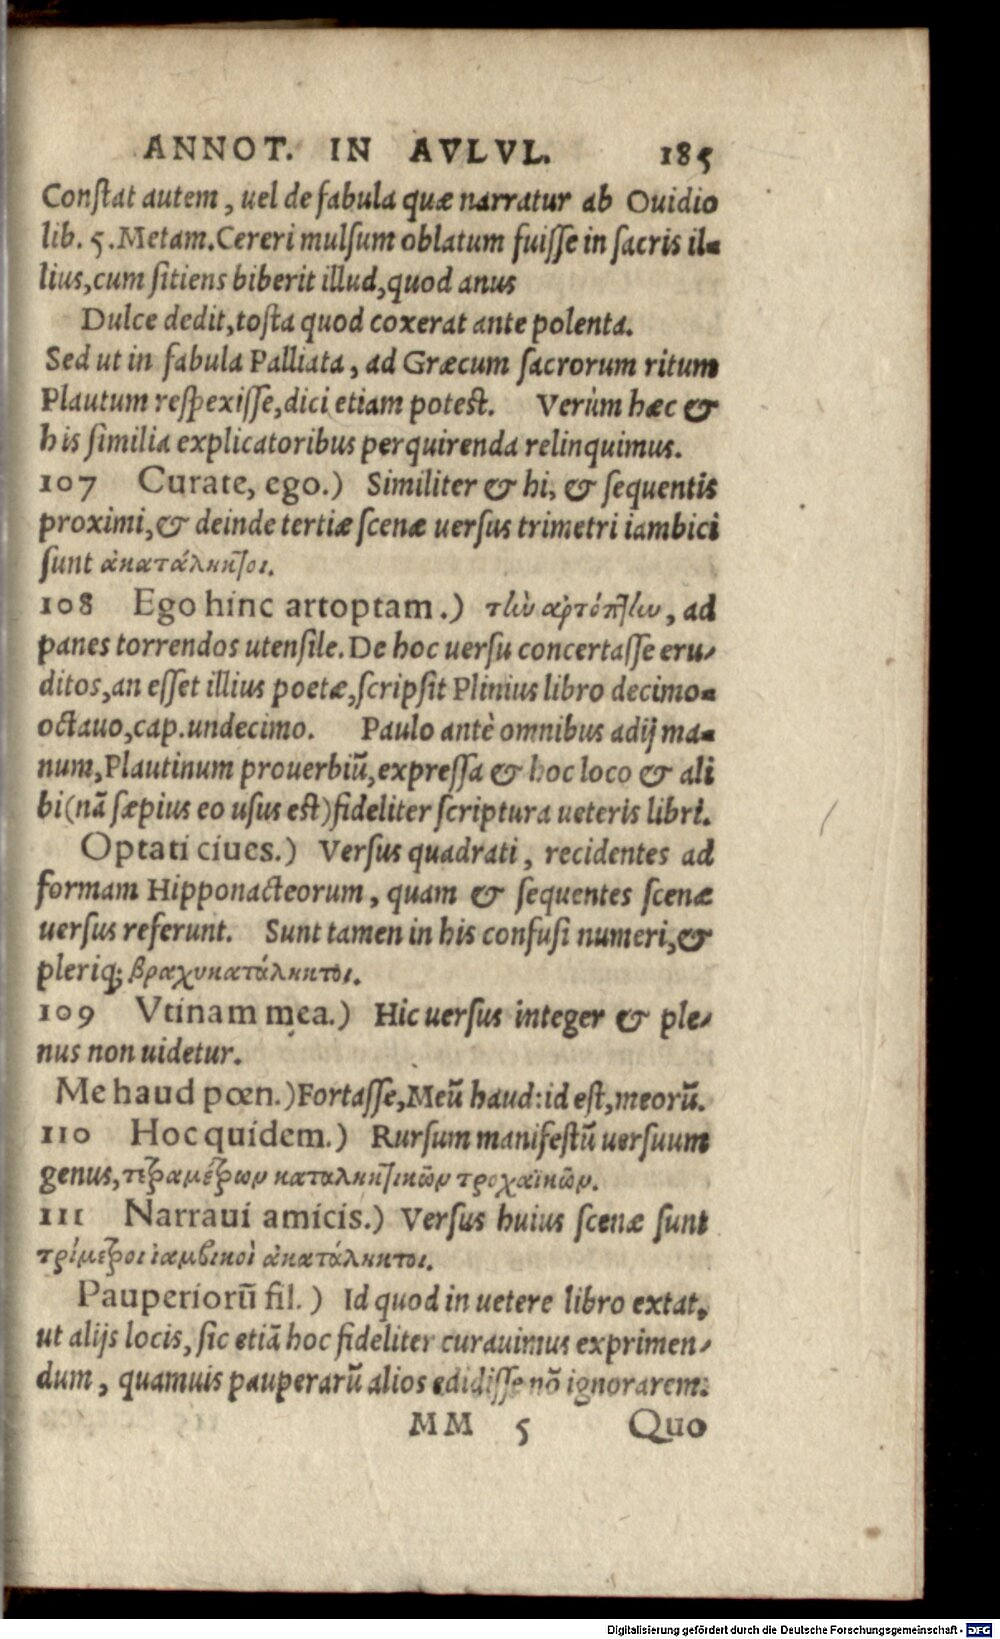 ANNOT. IN AVLVL. 185
Conſtat autem, uel de fabula quæ narratur ab Ouidio
lib. 5. Metam. Cereri mulſum oblatum fuiſſe in ſacris il-
lius, cum ſitiens biberit illud, quod anus
Dulce dedit, toſta quod coxerat ante polenta.
Sed ut in fabula Palliata, ad Græcum ſacrorum ritum
Plautum reſpexiſſe, dici etiam poteſt. Verùm hæc &
his ſimilia explicatoribus perquirenda relinquimus.
107 Curate, ego.) Similiter & hi, & ſequentis
proximi, & deinde tertiæ ſcenæ uerſus trimetri iambici
ſunt ἀκατάληκτοι.
108 Ego hinc artoptam.) τὴν ἀρτόπτην, ad
panes torrendos utenſile. De hoc uerſu concertaſſe eru-
ditos, an eſſet illius poetæ, ſcripſit Plinius libro decimo-
octauo, cap. undecimo. Paulo antè omnibus adij ma-
num, Plautinum prouerbiũ, expreſſa & hoc loco & ali
bi (nã ſæpius eo uſus eſt) fideliter ſcriptura ueteris libri.
Optati ciues.) Verſus quadrati, recidentes ad
formam Hipponacteorum, quam & ſequentes ſcenæ
uerſus referunt. Sunt tamen in his confuſi numeri, &
pleriq; βραχυκατάληκτοι.
109 Vtinam mea.) Hic uerſus integer & ple-
nus non uidetur.
Me haud pœn.) Fortaſſe, Meũ haud: id eſt, meorũ.
110 Hoc quidem.) Rurſum manifeſtũ uerſuum
genus, τετραμέτρων καταληκτικῶν τροχαϊκῶν.
111 Narraui amicis.) Verſus huius ſcenæ ſunt
τρίμετροι ἰαμβικοὶ ἀκατάληκτοι.
Pauperiorũ fil.) Id quod in uetere libro extat,
ut alijs locis, ſic etiã hoc fideliter curauimus exprimen-
dum, quamuis pauperarũ alios edidiſſe nõ ignorarem.
MM 5 Quo
Digitalisierung gefördert durch die Deutsche Forschungsgemeinschaft - DFG